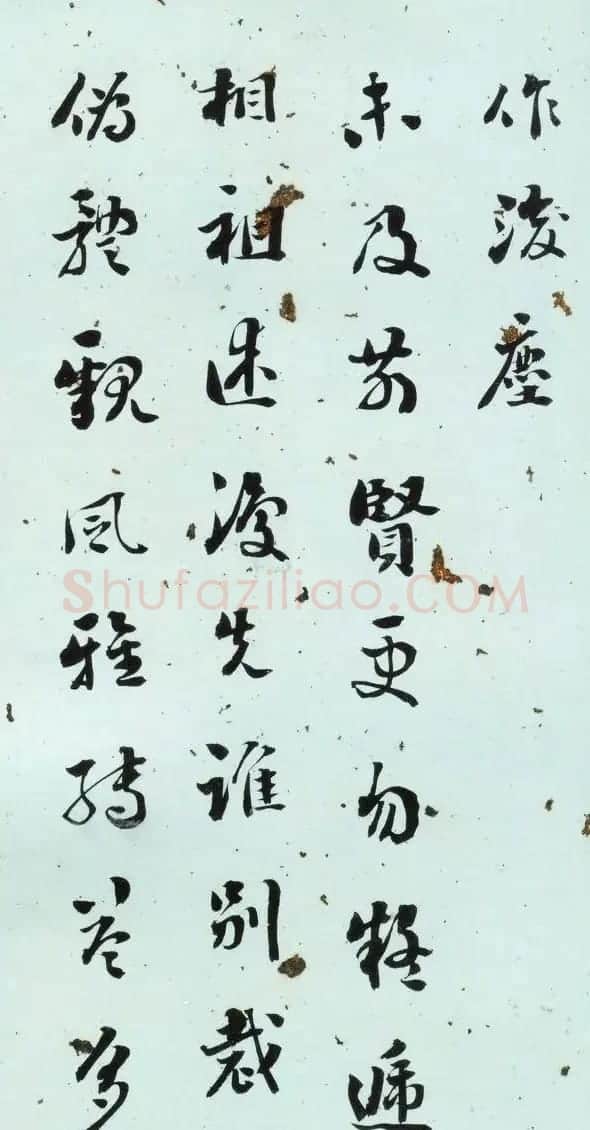 作後塵
未及前賢更勿疑遞
相祖述復先誰別裁
偽體親風雅轉益多
Shufaziliao.COM